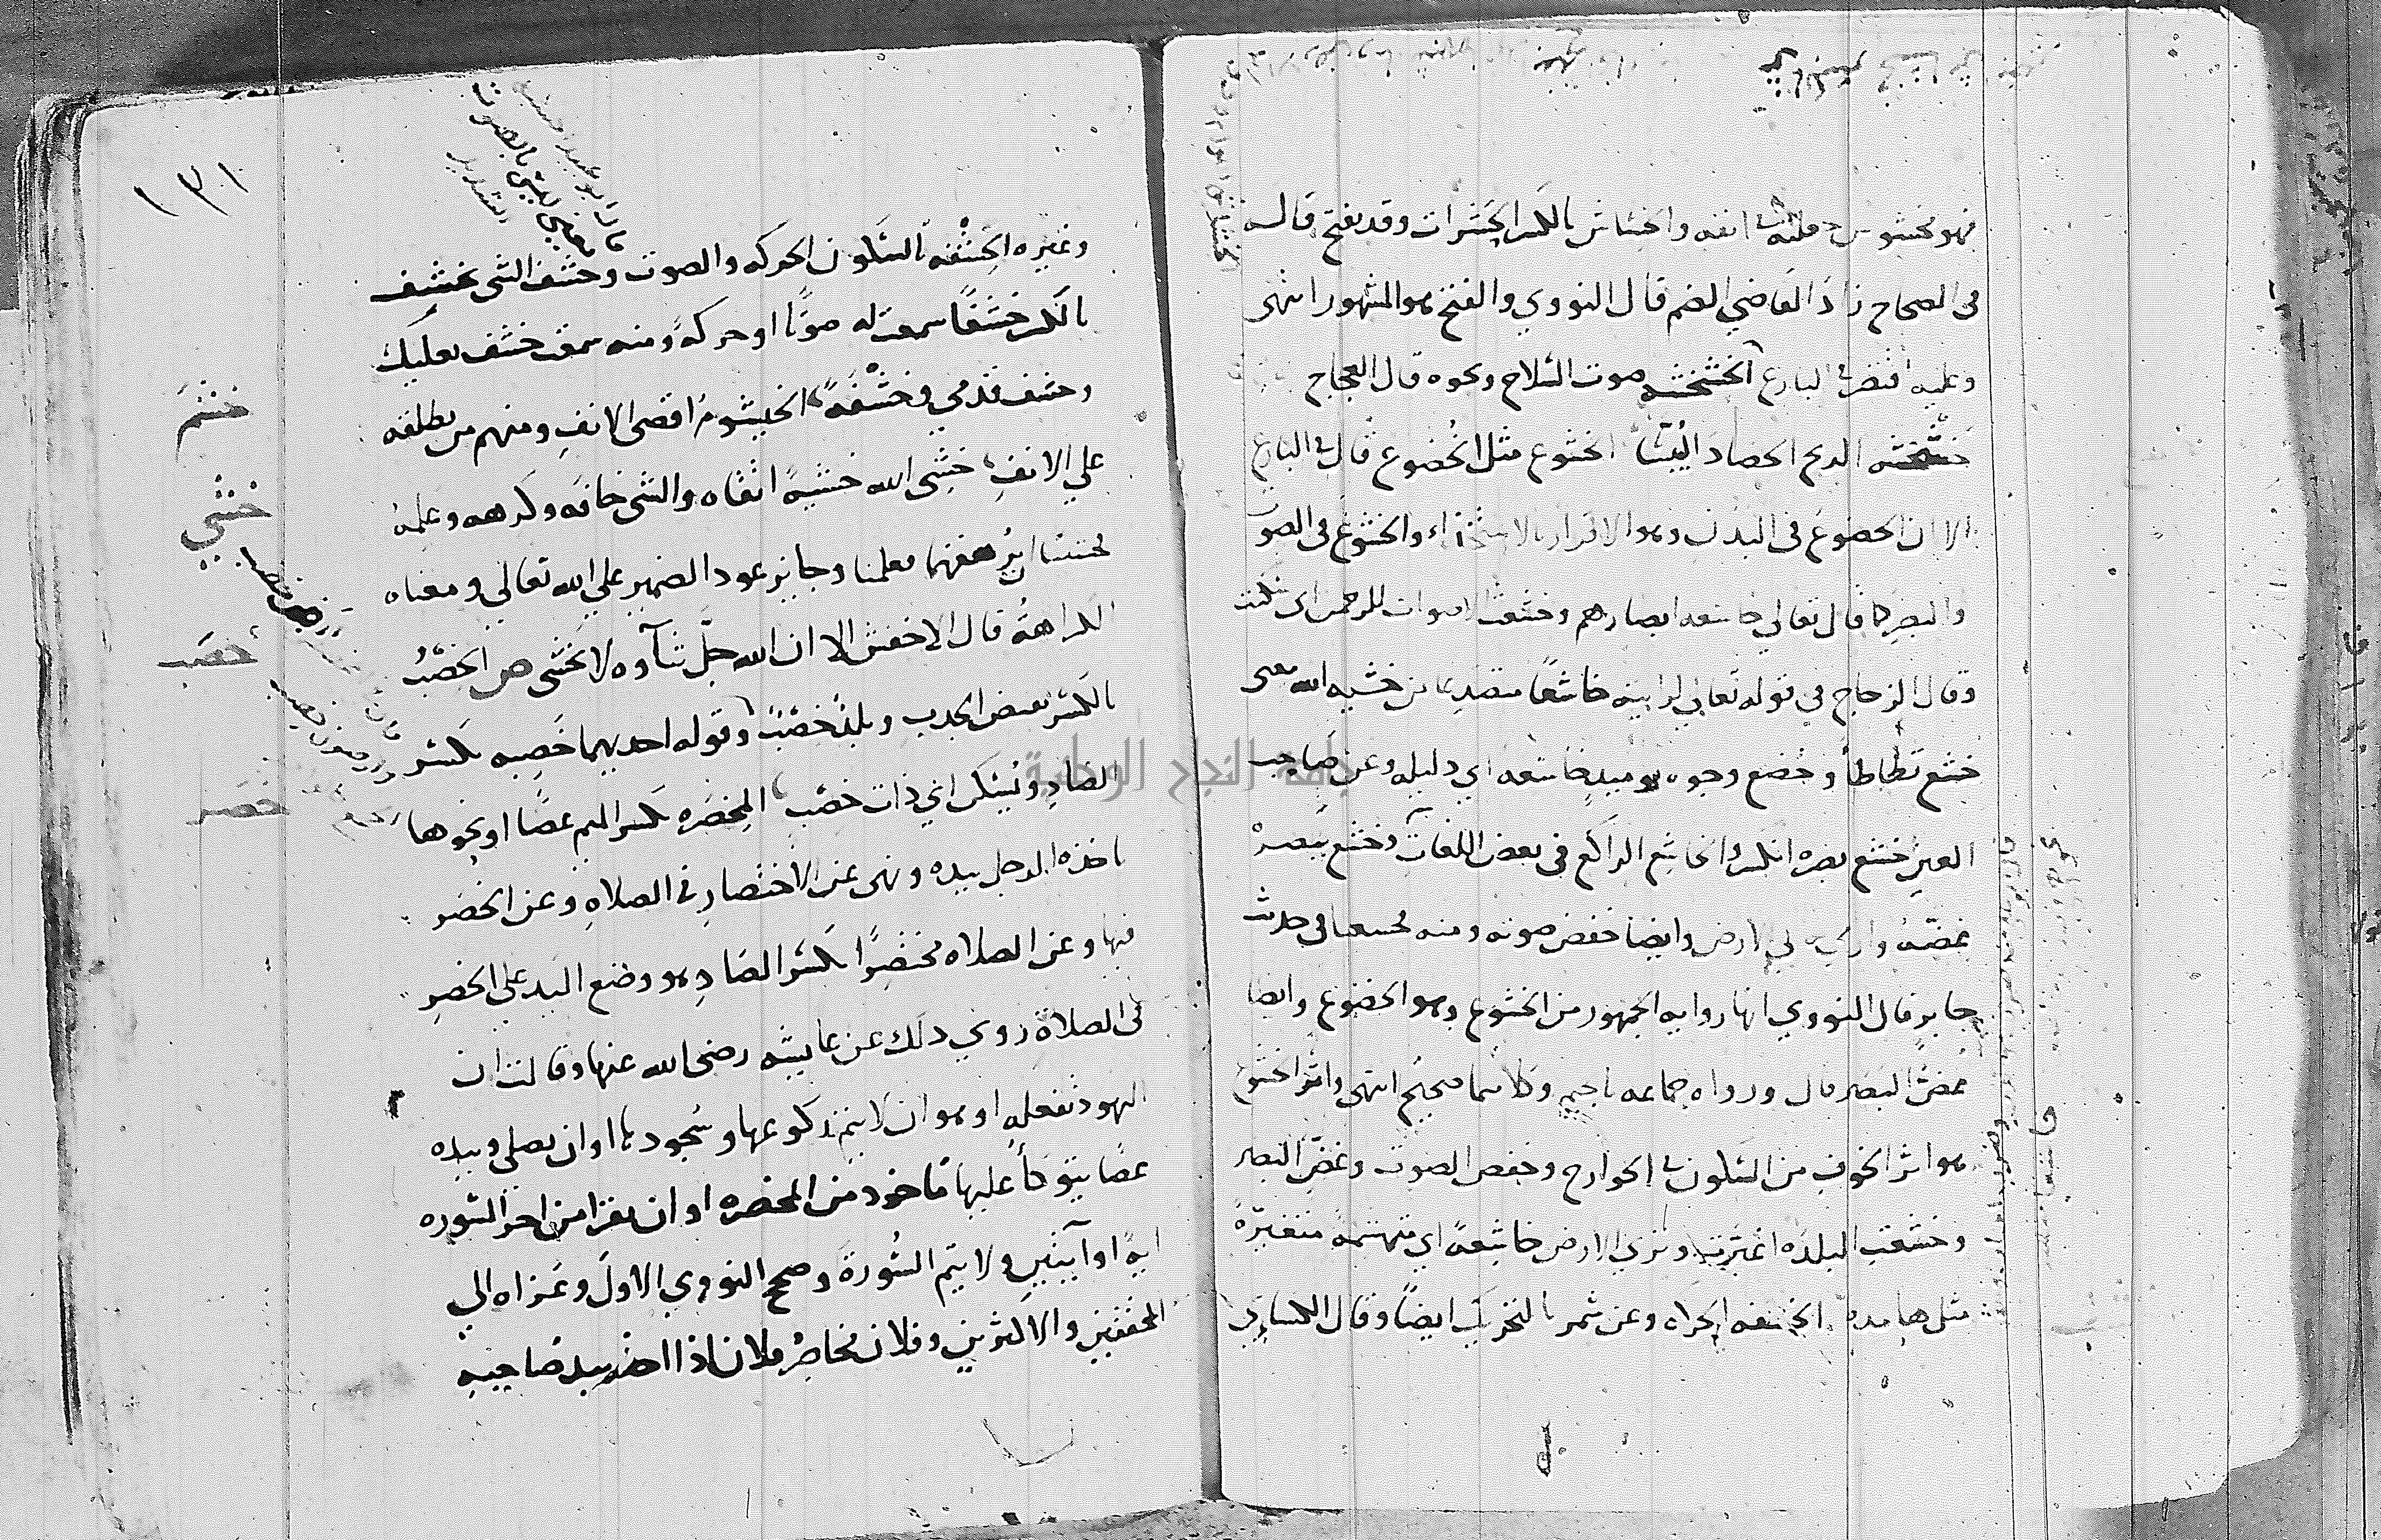 فهو مخشوش جعلته في انفه والخشاش بالكسر الحشرات وقد يفتح قاله
في الصحاح زاد القاضي الضم قال النووي والفتح هو المشهور انتهى
وعليه اقتصر في البارع الخشخشه صوت السلاح ونحوه قال العجاج
خشخشه الريح الحصاد اليبسا الخشوع مثل الخضوع قال في البارع
الا ان الخضوع في البدن وهو الاقرار بالاستخذاء والخشوع في الصوت
والبصر كما قال تعالى خاشعه ابصارهم وخشعت الاصوات للرحمن اي سكنت
وقال الزجاج في قوله تعالي لرايته خاشعا متصدعا من خشيه الله معنى
خشع تطاطأ وخضع وجوه يوميذ خاشعه اي ذليله وعن صاحب
العين خشع بصره انكسر والخاشع الراكع في بعض اللغات وخشع ببصره
غضه وارض وايضا خفض صوته ومنه فخشعنا في حديث
جابر قال النووي انها روايه الجمهور من الخشوع وهو الخضوع وايضا
غض البصر قال ورواه جماعه بالجيم وكلاهما صحيح انتهى واثر الخشوع
هو اثر الخوف من السكون في الجوارح وخفض الصوت وغض البصر
وخشعت البلده اغبرت وتري الارض خاشعه اي متهشمه متغيرة
مثل هامده الخشفه الحركه وعن شمر بالتحريك ايضا وقال الكساي
جامعة النجاح الوطنية
١٣١
وغيره الخشفه بالسكون الحركه والصوت وخشف الشي يخشف
بالكسر خشفا سمعت له صوتا او حركة ومنه سمعت خشف نعليك
وخشف قدمي وخشفة الخيشوم اقصى الانف ومنهم من يطلقه
علي الانف خشى الله خشية اتقاه والشي خافه وكرهه وعلمه
فخشينا ان يرهقهما فعلمنا وجايز عود الضمير علي الله تعالي ومعناه
الكراهة قال الاخفش الا ان الله جل ثناوه لا يخشى الخصب
بالكسر نقيض الجدب وبلد خصب وقوله احديهما خصبه بكسر
الصاد وتسكن اي ذات خصب المخصره بكسر الميم عصا او نحوها
ياخذه الرجل بيده ونهى عن الاختصار في الصلاة وعن الخصر
فيها وعن الصلاه مختصرا بكسر الصاد هو وضع اليد على الخصر
في الصلاة روي ذلك عن عايشه رضى الله عنها وقالت ان
اليهود تفعله او هو ان لا يتم ركوعها وسجودها او ان يصلي وبيده
عصا يتوكأ عليها ماخوذ من المخصره او ان يقرا من اخر السوره
اية او آيتين ولا يتم السورة وصحح النووي الاول وعزاه الي
المحققين والاكثرين وفلان مخاصر فلان اذا اخذ بيد صاحبه
خشم
خشي
خصب
خصر